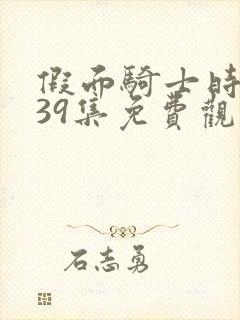 假面騎士時
39集免費觀
石志勇